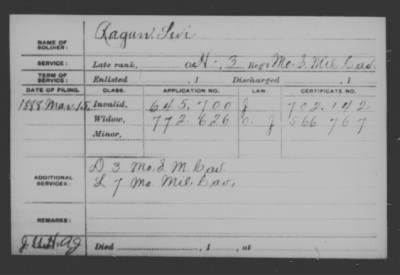 NAME OF SOLDIER: Ragan, Levi
SERVICE: Late rank, Co H, 3 Regt Mo. S. Mil Cav.
TERM OF SERVICE: Enlisted , 1 Discharged , 1
DATE OF FILING. CLASS. APPLICATION NO. LAW. CERTIFICATE NO.
1888 Mar. Invalid, 645.700 J 702.142
Widow, 772.626 J 566.767
Minor,
ADDITIONAL SERVICES: D 3 Mo. S. M. Cav
L 7 Mo. Mil. Cav.
REMARKS:
Died , 1 , at